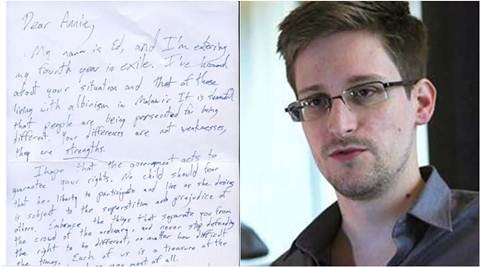 Dear Annie,
My name is Ed, and I'm entering
my fourth year in exile. I've heard
about your situation and that of those
living with albinism in Malawi. It is shameful
that people are being persecuted for being
different. Your differences are not weaknesses,
they are strengths.
I hope that the government acts to
guarantee your rights. No child should fear
that her liberty to participate and live as she desires
is subject to the superstition and prejudice of
others. Embrace the things that separate you from
the crowd of the ordinary, and never stop defending
the right to be different, no matter how difficult
the times. Each of us is a treasure at the
you most of all.